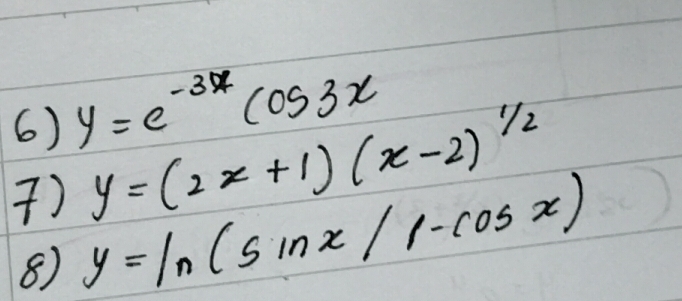 6) y = e^-3x cos3x
7) y = (2x+1) (x-2)^1/2
8) y = ln (sinx / 1-cos x)